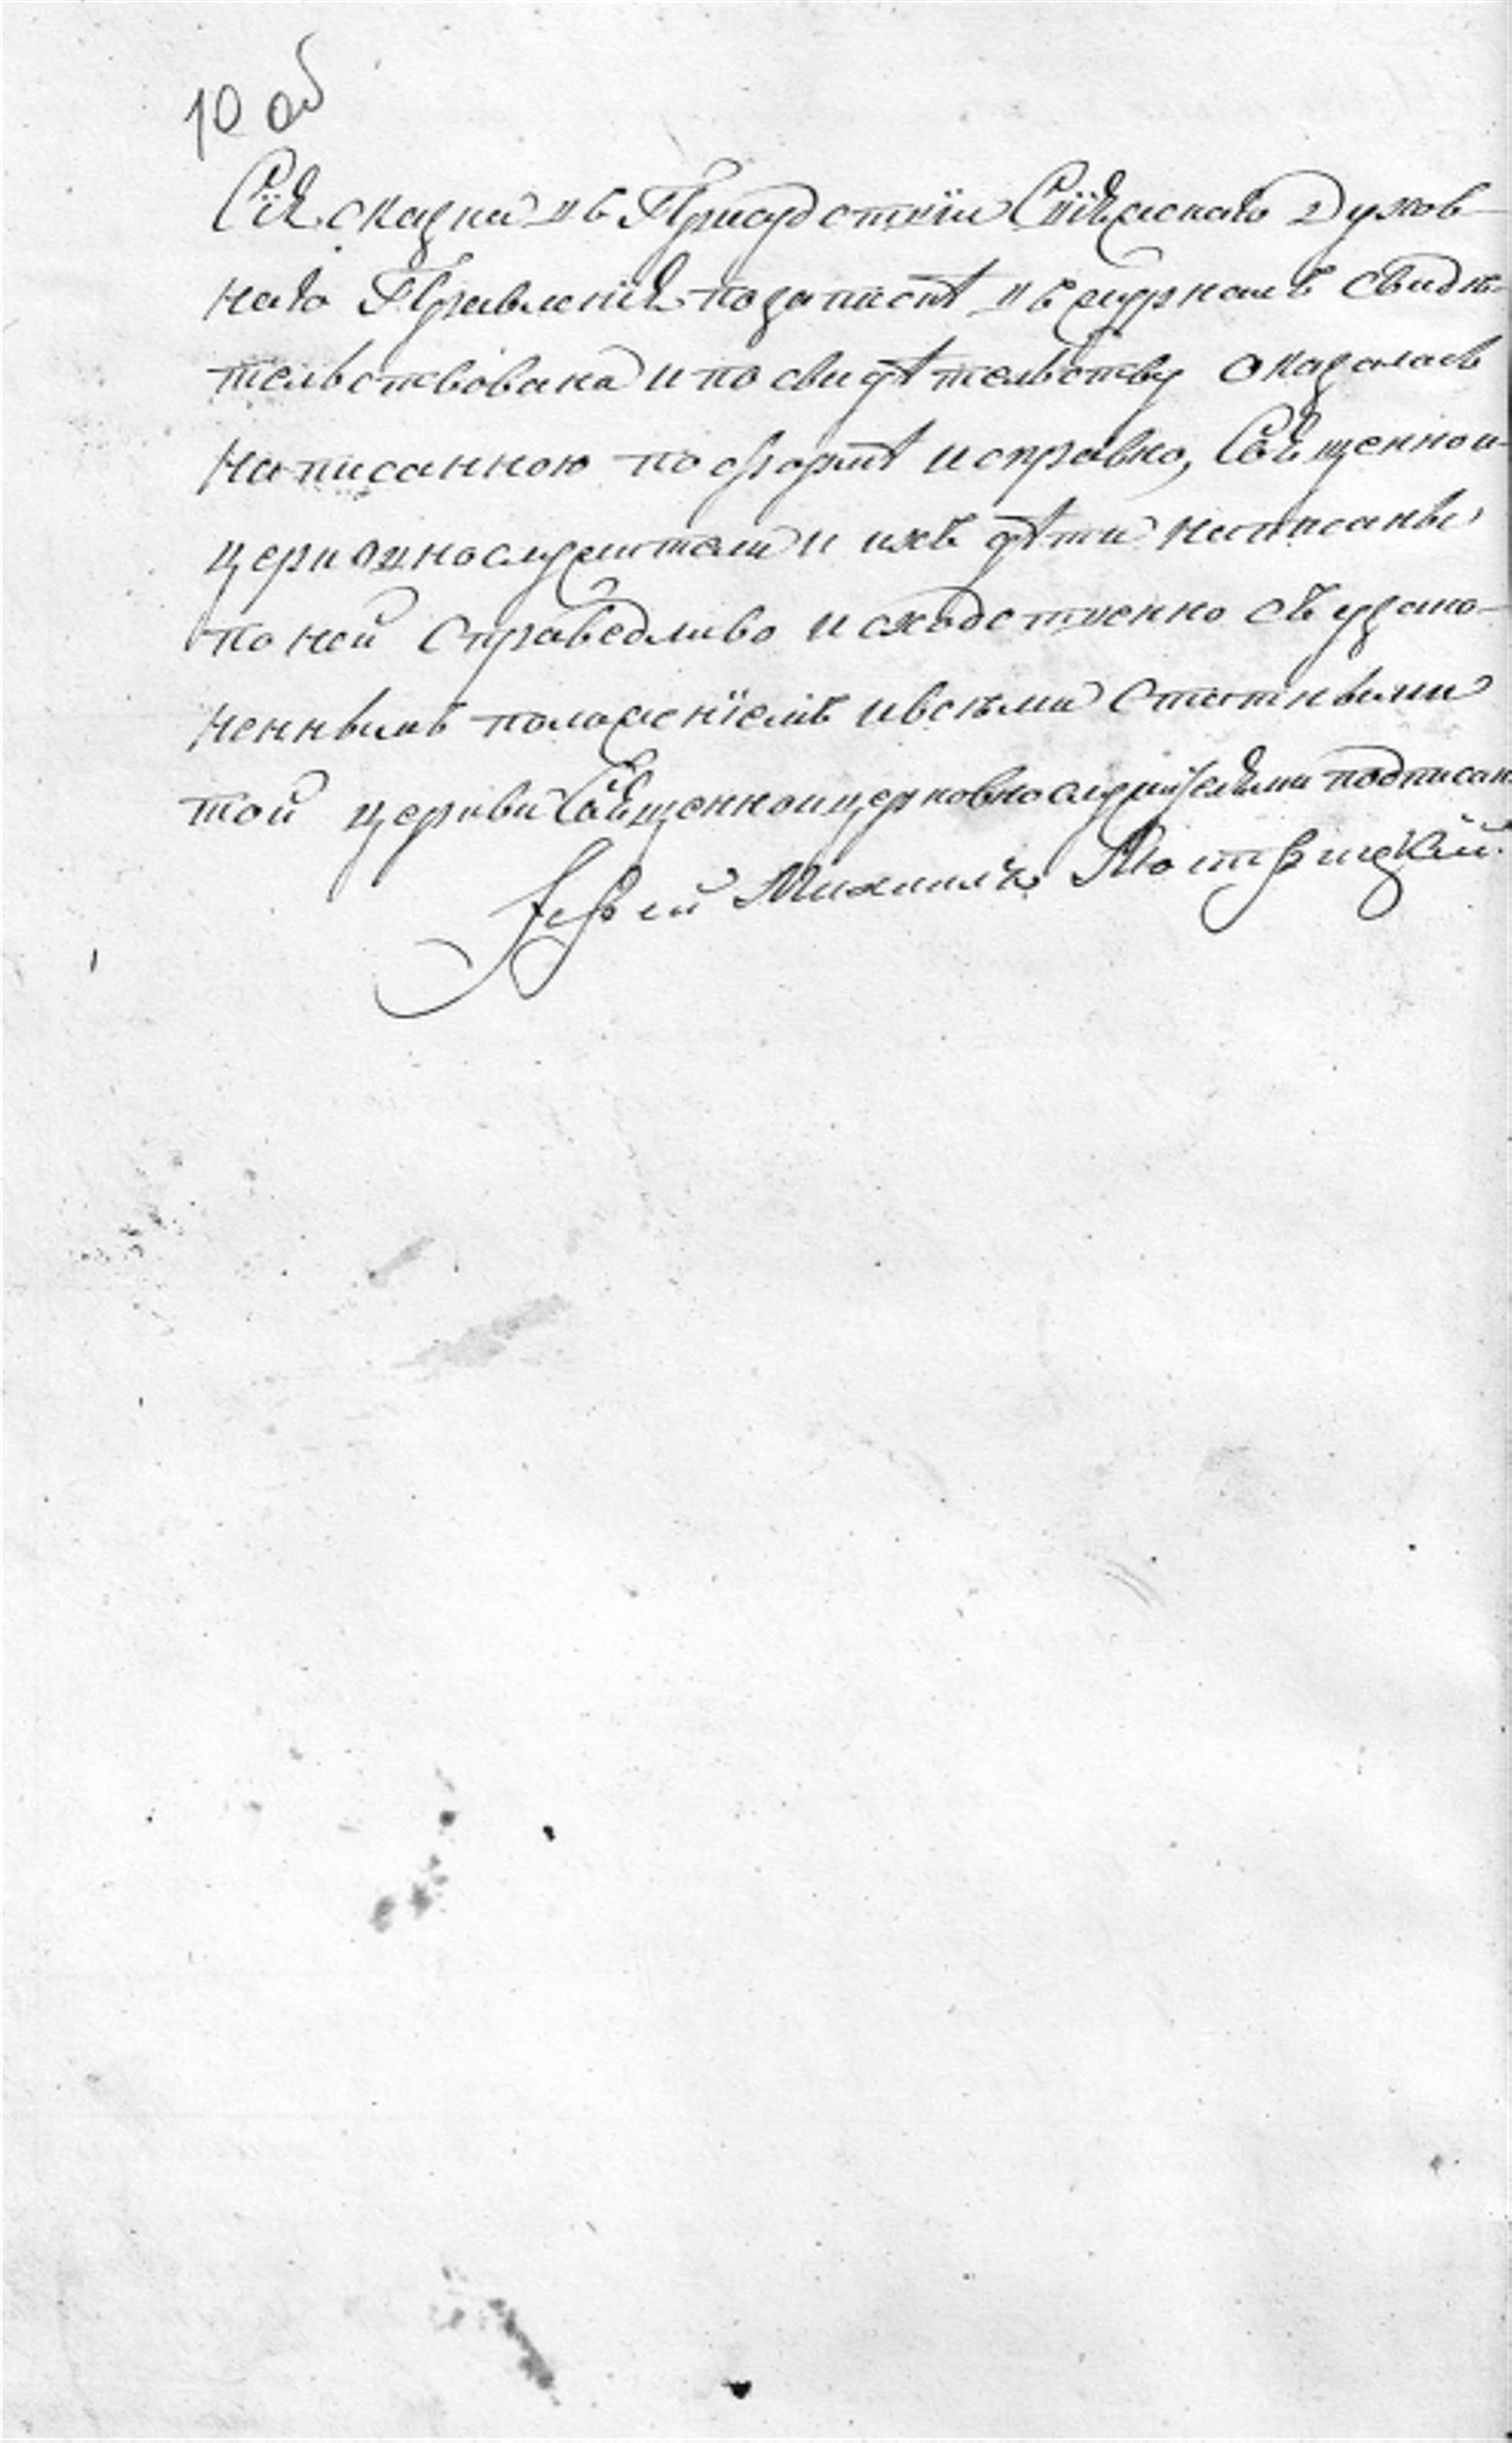 10 об
Сія скаска въ Присудствіи Свіяжскаго Духов-
наго Правленія по записѣ въ журналъ свидѣ-
тельствована и по свидѣтельству оказалась
написанною по формѣ исправно, Священнои-
церковнослужители и ихъ дѣти написаны
по ней справедливо и сходственно съ узако-
неннымъ положеніемъ и всѣми статными
той церкви Священноицерковнослужительми подписан
Іерей Михаилъ